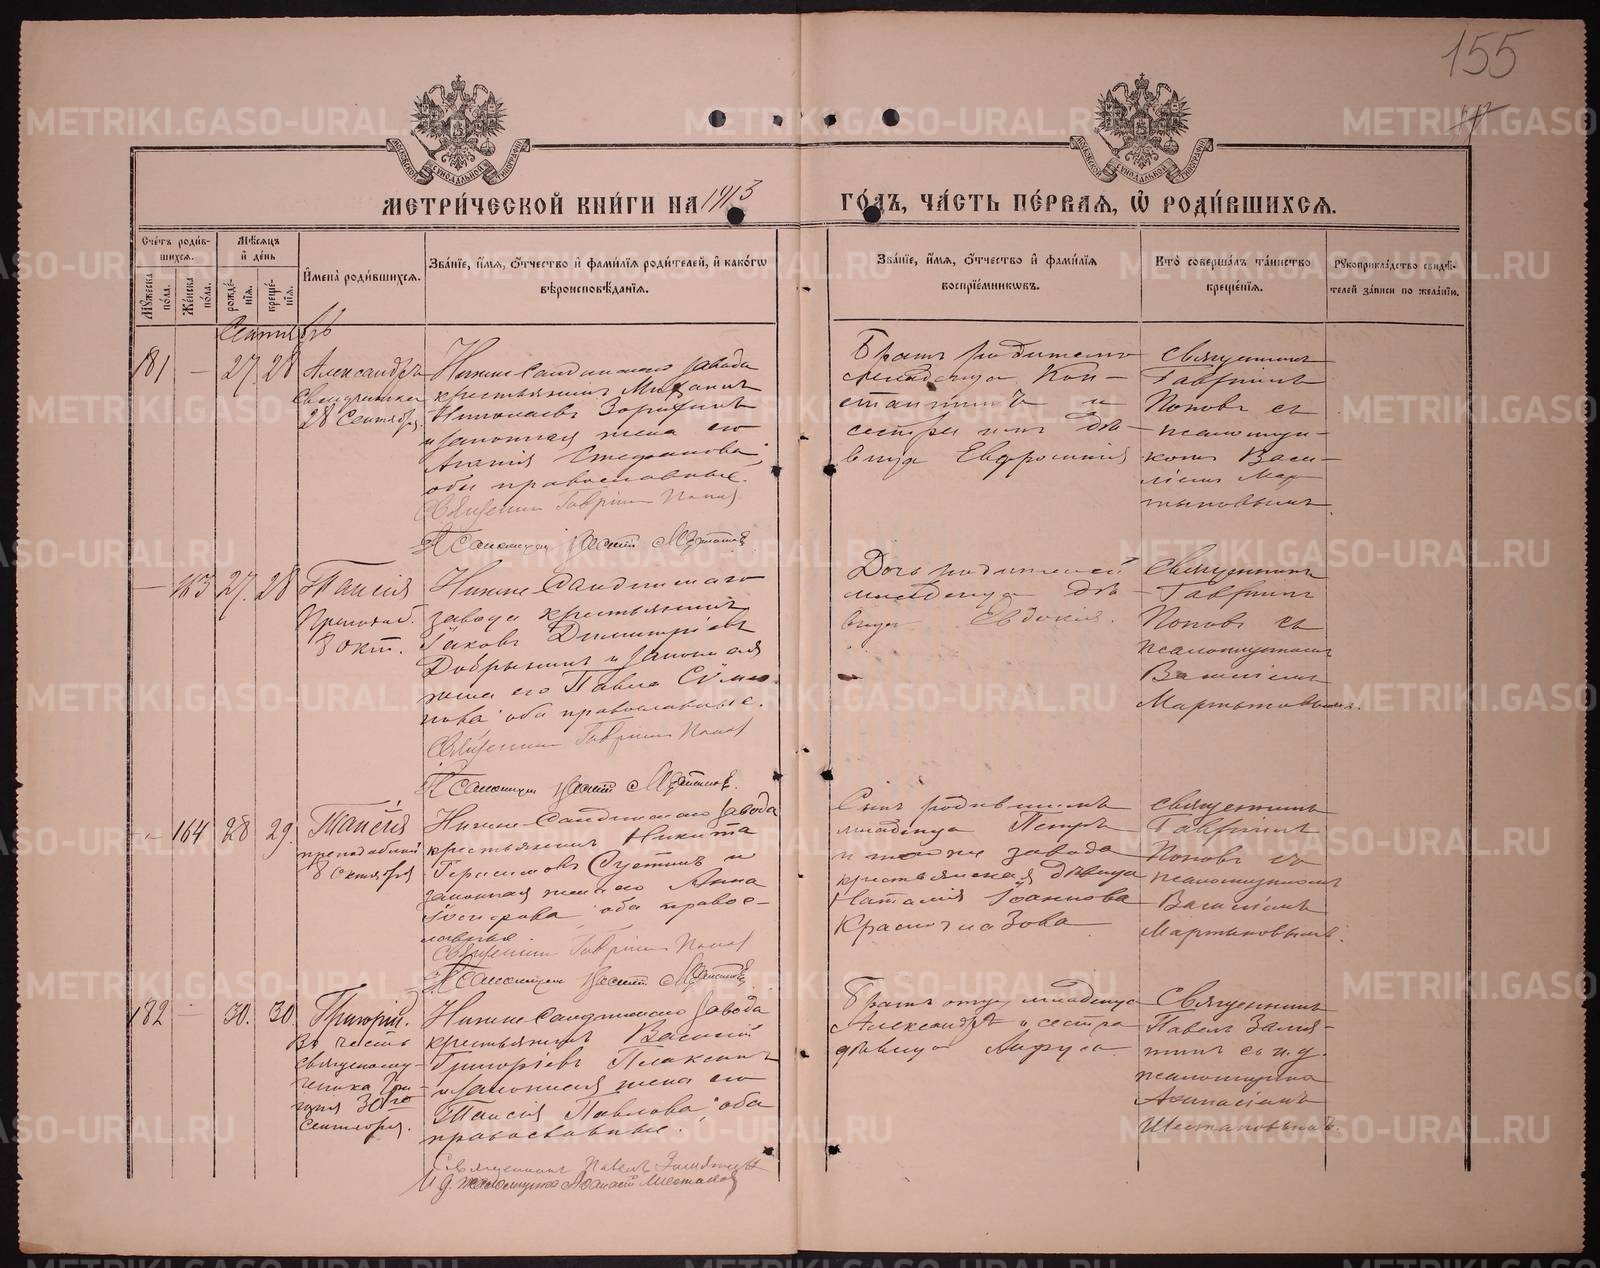 155
МЕТРИЧЕСКОЙ КНИГИ НА 1913 ГОДЪ, ЧАСТЬ ПЕРВАЯ, Ѡ РОДИВШИХСЯ.
Счетъ родившихся.
Мужеска пола.
Женска пола.
Мѣсяцъ и день
рожденія.
крещенія.
Имена родившихся.
Званіе, имя, отчество и фамилія родителей, и какогѡ
вѣроисповѣданія.
Званіе, имя, отчество и фамилія
воспріемникѡвъ.
Кто совершалъ таинство
крещенія.
Рукоприкладство свидѣ-
телей записи по желанію.
Сентябрь
181 — 27. 28
Александръ
28 Сентября.
Нижне-Салдинскаго завода
крестьянинъ Михаилъ
Николаевъ Зорихинъ
и законная жена его
Стефанова,
оба православные.
Священникъ Гавріилъ Поповъ
Псаломщикъ Василій Мартыновъ
Братъ родителя
младенца Кон-
стантинъ и
сестра дѣ-
вица Евфросинія
Священникъ
Гавріилъ
Поповъ съ
псаломщи-
комъ Васи-
ліемъ Мар-
тыновымъ.
— 163 27. 28
Таисія
Преподоб.
8 окт.
Нижне-Салдинскаго
завода крестьянинъ
Іаковъ Димитріевъ
Добрынинъ и законная
жена его Павла
оба православные.
Священникъ Гавріилъ Поповъ
Псаломщикъ Василій Мартыновъ.
Дочь родителей
младенца дѣ-
вица Евдокія.
Священникъ
Гавріилъ
Поповъ съ
псаломщикомъ
Василіемъ
Мартыновымъ.
— 164 28 29.
Таисія
преподобной
8 октября
Нижне-Салдинскаго завода
крестьянинъ Никита
Герасимовъ и
законная жена его Анна
оба правос-
лавные.
Священникъ Гавріилъ Поповъ
Псаломщикъ Василій Мартыновъ
Сынъ родившихъ
младенца Петръ
и того же завода
крестьянская дѣвица
Наталія Іоаннова
Красноглазова
Священникъ
Гавріилъ
Поповъ съ
псаломщикомъ
Василіемъ
Мартыновымъ.
182 — 30. 30
Григорій.
Въ честь
священному-
ченика Гри-
горія 30го
Сентября.
Нижне-Салдинскаго завода
крестьянинъ Василій
Григоріевъ Плаксинъ
и законная жена его
Таисія Павлова, оба
православные.
Священникъ Павелъ Замятинъ
И. д. псаломщика Аѳанасій Шестаковъ
Братъ отца младенца
Александръ и сестра
дѣвица
Священникъ
Павелъ Замя-
тинъ съ и. д.
псаломщика
Аѳанасіемъ
Шестаковымъ.
METRIKI.GASO-URAL.RU